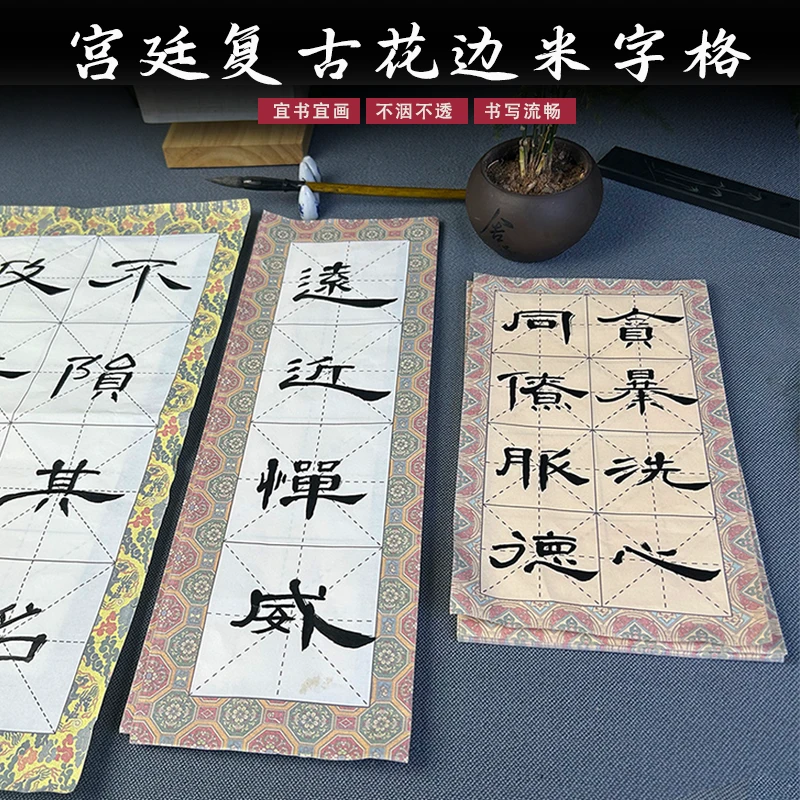 宫廷复古花边米字格
宜书宜画
不洇不透
书写流畅
不隕其名
及
遠近憚威
貪暴洗心
同僚服德
舍